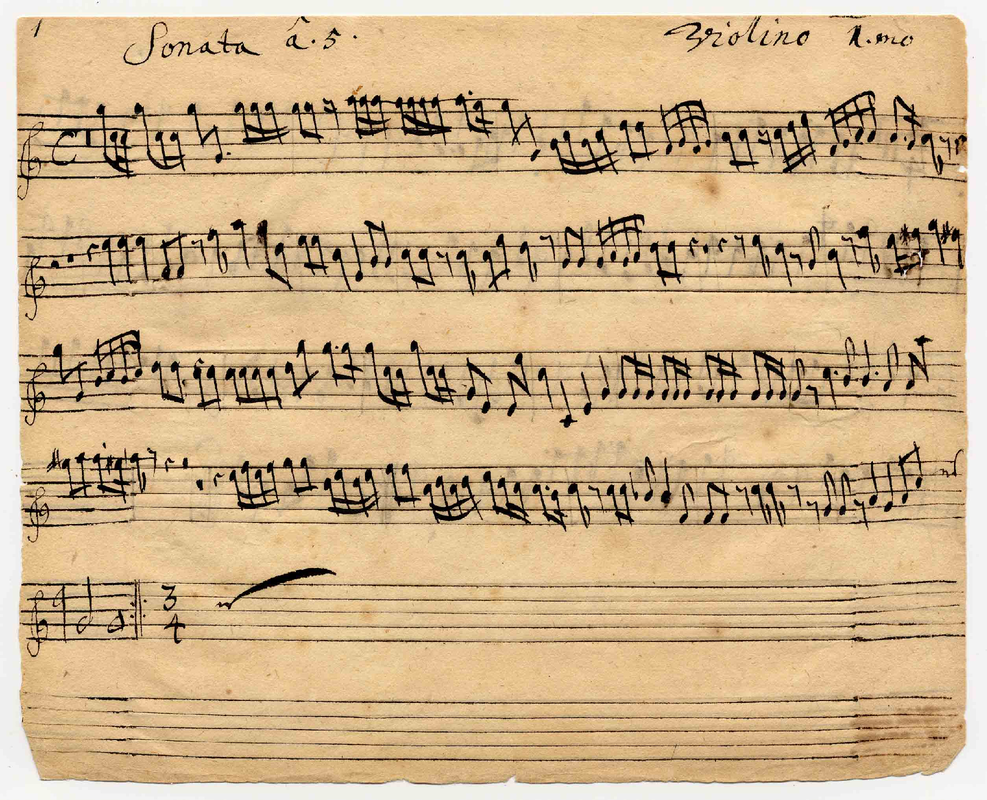 1
Sonata â. 5. Violino 1.mo
C
3
4